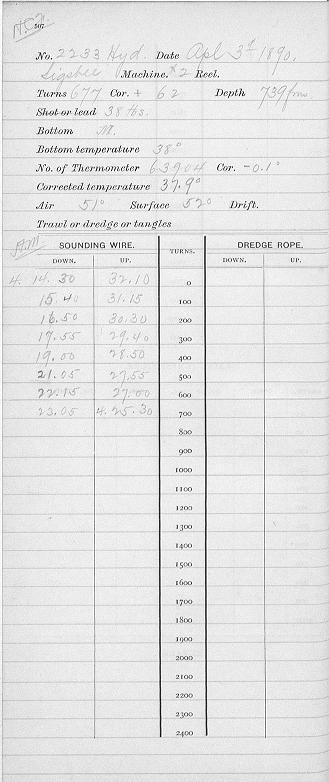 N.C.H.
507
No. 2233 Hyd. Date Apl 3d 1890,
Sigsbee Machine. #2 Reel.
Turns 677 Cor. + 62 Depth 739 fms
Shot or lead 38 lbs.
Bottom M.
Bottom temperature 38°
No. of Thermometer 63904 Cor. -0.1°
Corrected temperature 37.9°
Air 51° Surface 52° Drift.
Trawl or dredge or tangles
A.M. SOUNDING WIRE. TURNS. DREDGE ROPE.
DOWN. UP. DOWN. UP.
4. 14.30 32.10 0
15.40 31.15 100
16.50 30.30 200
17.55 29.40 300
19.00 28.50 400
21.05 27.55 500
22.15 27.00 600
23.05 4.25.30 700
800
900
1000
1100
1200
1300
1400
1500
1600
1700
1800
1900
2000
2100
2200
2300
2400